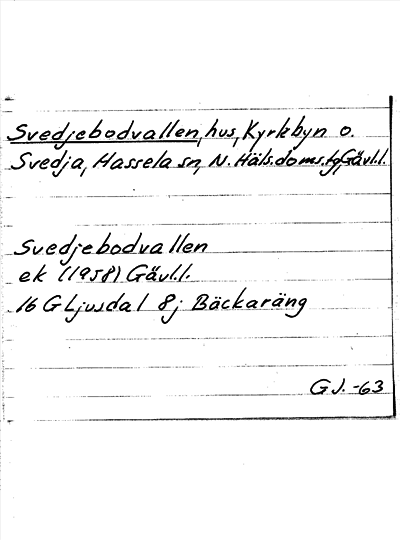 Svedjebodvallen, hus, Kyrkbyn o.
Svedja, Hassela sn, N. Häls. doms. tg, Gävl.l.
Svedjebodvallen
ek (1958) Gävl.l.
16 G Ljusdal 8j Bäckaräng
G J. -63